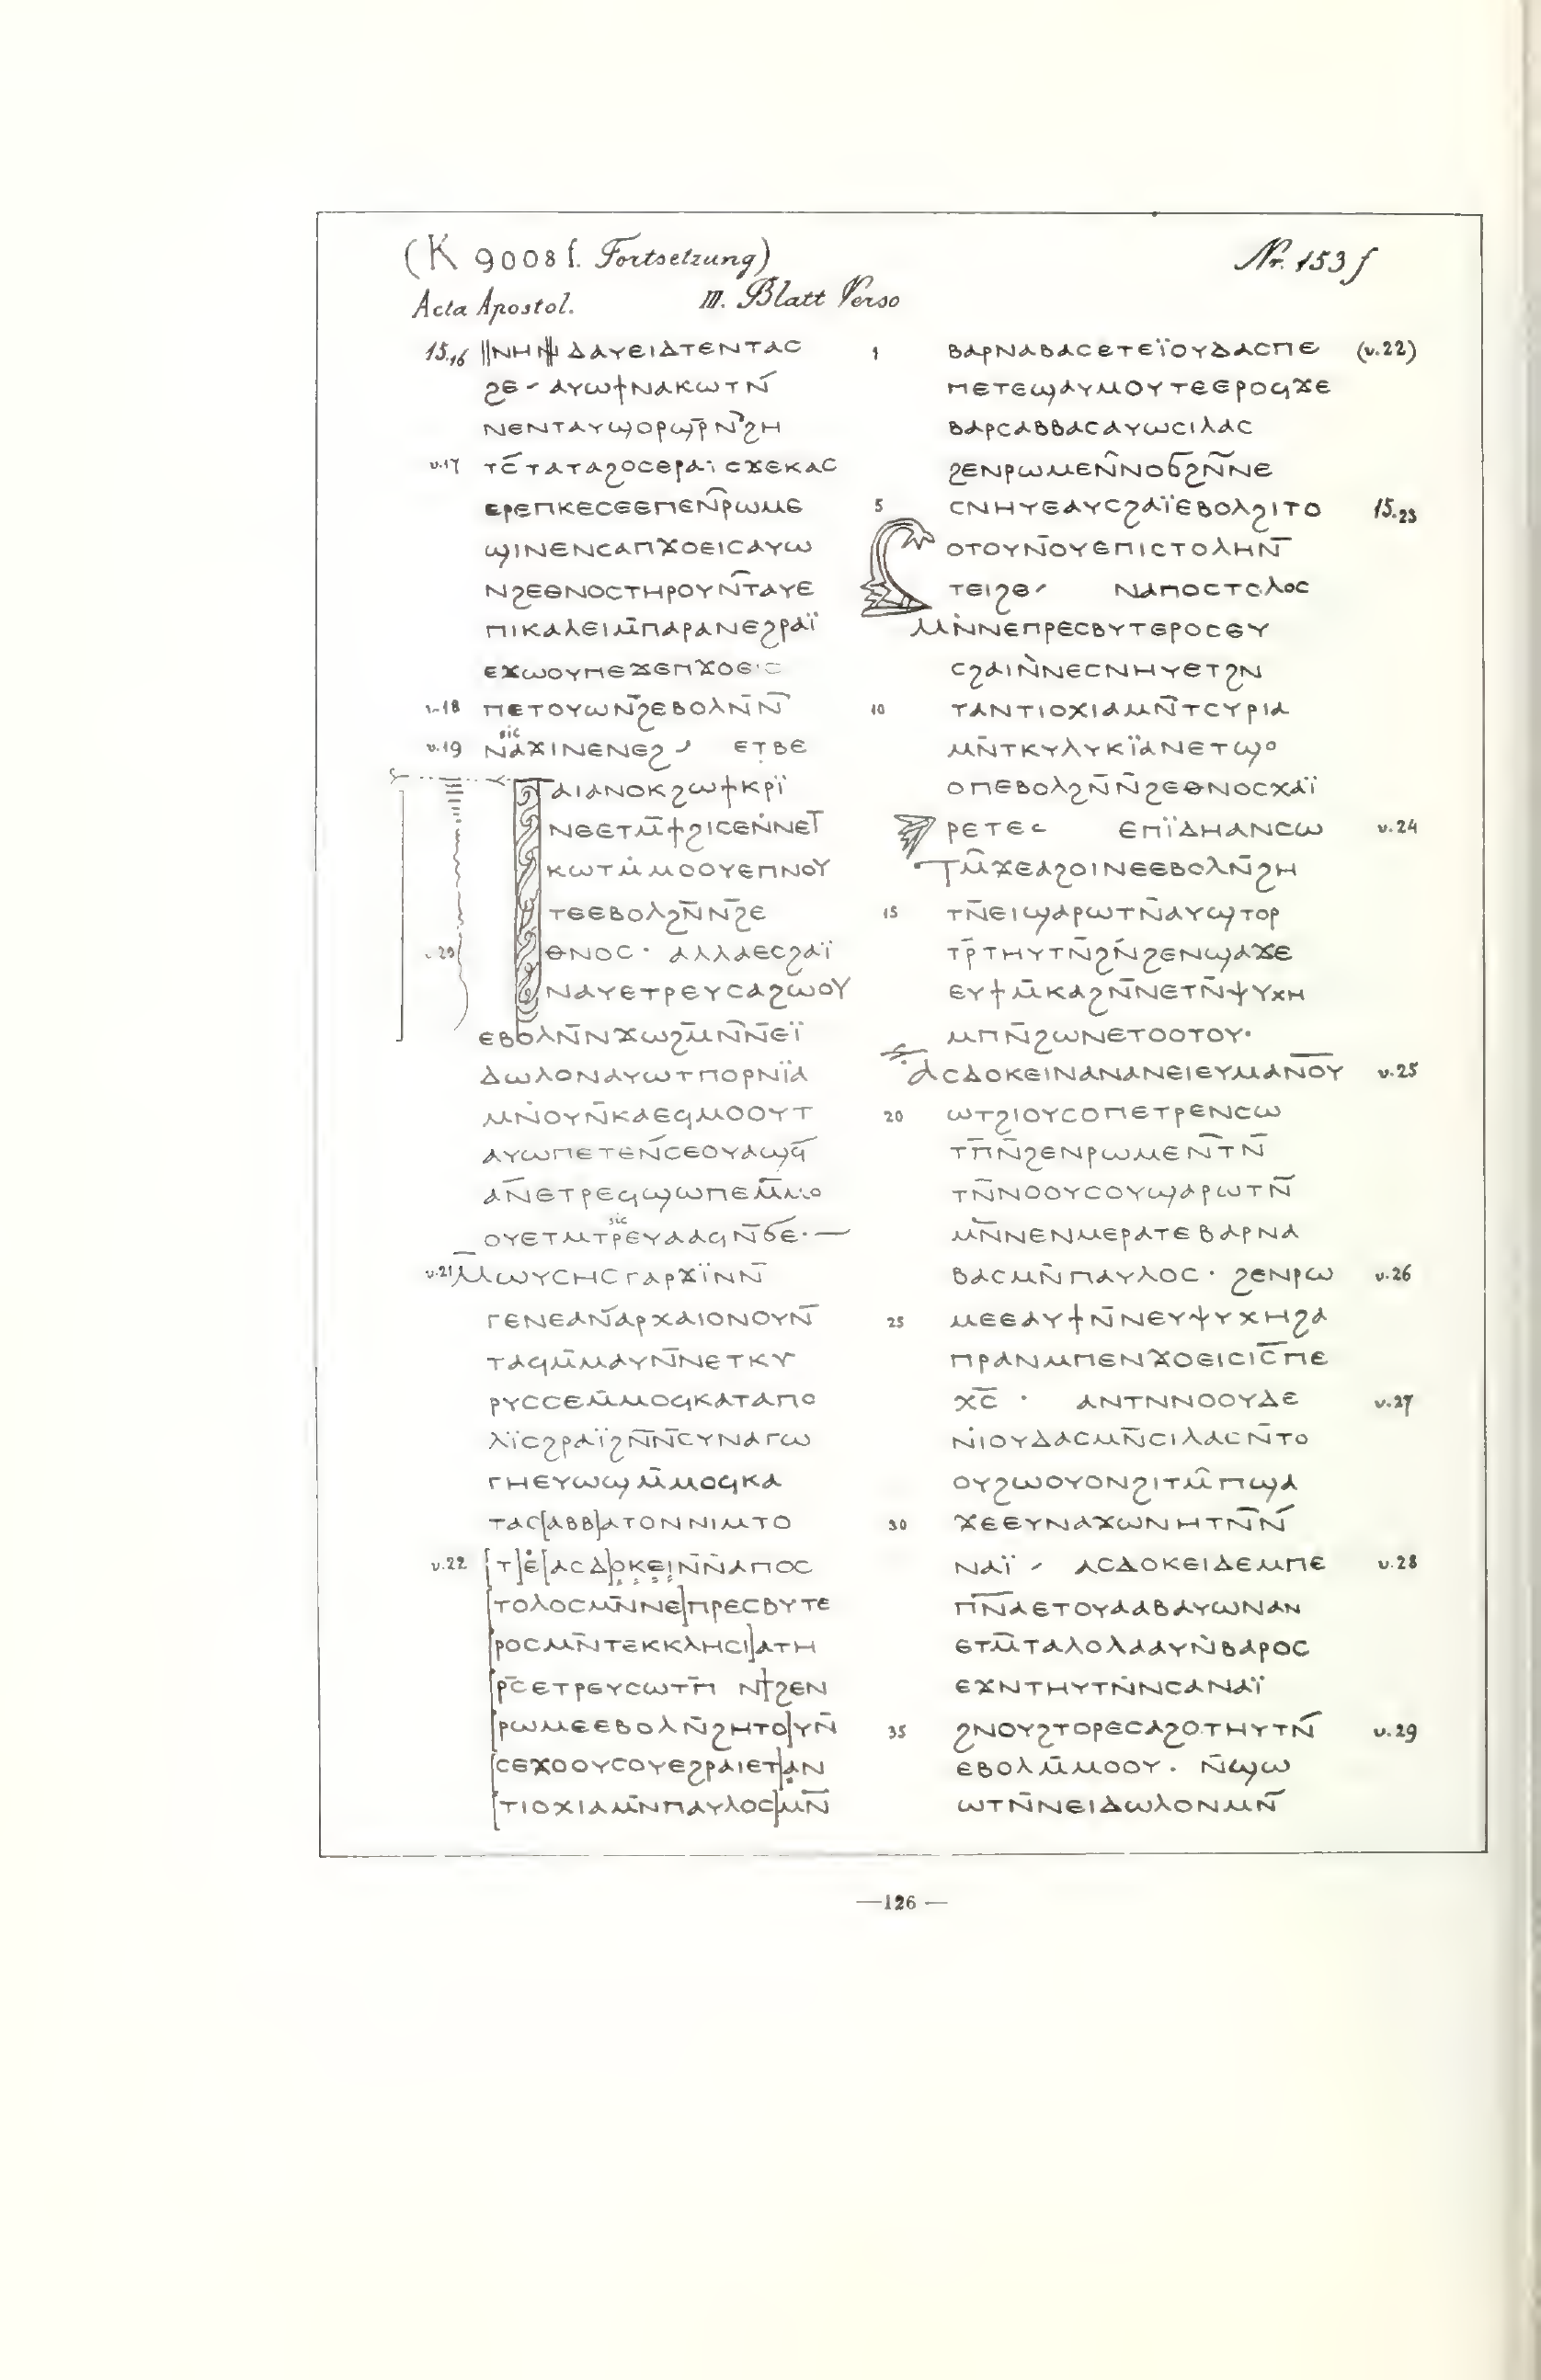 (K 9008 f. Fortsetzung)
Nr. 153 f
Acta Apostol. III. Blatt Verso
15.16 ‖ⲚⲎⲚ ⲆⲀⲨⲈⲒⲆⲦⲈⲚⲦⲀⲤ
ϨⲈ ⸍ ⲀⲨⲰϮⲚⲀⲔⲰⲦⲚ̅
ⲚⲈⲚⲦⲀⲨϢⲞⲢϢⲢ̅ Ⲛ̅ϨⲎ
v.17 ⲦⲤ̅ ⲦⲀⲦⲀϨⲞⲤⲈⲢⲀⲓ̈ ⲤϪⲈⲔⲀⲤ
ⲈⲢⲈⲠⲔⲈⲤⲈⲈⲠⲈⲚ̅ⲢⲰⲘⲈ
ϢⲒⲚⲈⲚⲤⲀⲠϪⲞⲈⲒⲤⲀⲨⲰ
ⲚϨⲈⲐⲚⲞⲤⲦⲎⲢⲞⲨⲚ̅ⲦⲀⲨⲈ
ⲠⲒⲔⲀⲖⲈⲒⲘ̅ⲠⲀⲢⲀⲚⲈϨⲢⲀⲒ̈
ⲈϪⲰⲞⲨⲠⲈϪⲈⲠϪⲞⲈⲒⲤ
v.18 ⲠⲈⲦⲞⲨⲰⲚ̅ϨⲈⲂⲞⲖⲚ̅Ⲛ̅
sic
v.19 ⲚⲀϪⲒⲚⲈⲚⲈϨ ⸍ ⲈⲦⲂⲈ
ⲠⲀⲒⲀⲚⲞⲔϨⲰϮⲔⲢⲒ̈
ⲚⲈⲈⲦⲘ̅ϮϨⲒⲤⲈⲚ̇ⲚⲈⲦ
ⲔⲰⲦⲘ̇ⲘⲞⲞⲨⲈⲠⲚⲞⲨ
ⲦⲈⲈⲂⲞⲖϨⲚ̅Ⲛ̅ϨⲈ
v.20 ⲐⲚⲞⲤ · ⲀⲖⲖⲀⲈⲤϨⲀⲒ̈
ⲚⲀⲨⲈⲦⲢⲈⲨⲤⲀϨⲰⲞⲨ
ⲈⲂⲞⲖⲚ̅ⲚϪⲰϨⲘ̅Ⲛ̅Ⲛ̅ⲈⲒ̈
ⲆⲰⲖⲞⲚⲀⲨⲰⲦⲠⲞⲢⲚⲒ̈Ⲁ
ⲘⲚ̇ⲞⲨⲚ̅ⲔⲀⲈϤⲘⲞⲞⲨⲦ
ⲀⲨⲰⲠⲈⲦⲈⲚ̅ⲤⲈⲞⲨⲀϢϤ̅
ⲀⲚ̅ⲈⲦⲢⲈϤϢⲰⲠⲈⲘ̅ⲘⲞ
sic
ⲞⲨⲈⲦⲘⲦⲢⲈⲨⲀⲀϤⲚ̅ϬⲈ·—
v.21 ⲘⲰⲨⲤⲎⲤⲄⲀⲢϪⲒ̈ⲚⲚ̅
ⲄⲈⲚⲈⲀⲚ̅ⲀⲢⲬⲀⲒⲞⲚⲞⲨⲚ̅
ⲦⲀϤⲘ̅ⲘⲀⲨⲚ̅ⲚⲈⲦⲔⲨ
ⲢⲨⲤⲤⲈⲘ̅ⲘⲞϤⲔⲀⲦⲀⲠⲞ
ⲖⲒ̈ⲤϨⲢⲀⲒ̈ϨⲚ̅Ⲛ̅ⲤⲨⲚⲀⲄⲰ
ⲄⲎⲈⲨⲰϢⲘ̅ⲘⲞϤⲔⲀ
ⲦⲀⲤ[ⲀⲂⲂ]ⲀⲦⲞⲚⲚⲒⲘⲦⲞ
v.22 [Ⲧ]Ⲉ̇[ⲀⲤⲆ]ⲞⲔⲈⲒⲚ̅Ⲛ̅ⲀⲠⲞⲤ
[ⲦⲞⲖⲞⲤⲘⲚ̅ⲚⲈ]ⲠⲢⲈⲤⲂⲨⲦⲈ
[ⲢⲞⲤⲘⲚ̅ⲦⲈⲔⲔⲖⲎⲤⲒ]ⲀⲦⲎ
[ⲢⲤ̅ⲈⲦⲢⲈⲨⲤⲰⲦⲠ̅ Ⲛ]ϨⲈⲚ
[ⲢⲰⲘⲈⲈⲂⲞⲖⲚ̅ϨⲎⲦⲞ]ⲨⲚ̅
[ⲤⲈϪⲞⲞⲨⲤⲞⲨⲈϨⲢⲀⲒⲈⲦ]ⲀⲚ
[ⲦⲒⲞⲬⲒⲀⲘ̅ⲚⲠⲀⲨⲖⲞⲤ]ⲘⲚ̅
1 ⲂⲀⲢⲚⲀⲂⲀⲤⲈⲦⲈⲒ̈ⲞⲨⲆⲀⲤⲠⲈ (v.22)
ⲠⲈⲦⲈϢⲀⲨⲘⲞⲨⲦⲈⲈⲢⲞϤϪⲈ
ⲂⲀⲢⲤⲀⲂⲂⲀⲤⲀⲨⲰⲤⲒⲖⲀⲤ
ϨⲈⲚⲢⲰⲘⲈⲚ̅ⲚⲞϬϨⲚ̅ⲚⲈ
5 ⲤⲚⲎⲨⲈⲀⲨⲤϨⲀⲒ̈ⲈⲂⲞⲖϨⲒⲦⲞ 15.23
ⲞⲦⲞⲨⲚ̅ⲞⲨⲈⲠⲒⲤⲦⲟⲖⲎⲚ̅
ⲦⲈⲒϨⲈ⸍ ⲚⲀⲠⲞⲤⲦⲞⲖⲞⲤ
ⲘⲚ̇ⲚⲈⲠⲢⲈⲤⲂⲨⲦⲈⲢⲞⲤⲈⲨ
ⲤϨⲀⲒⲚ̀ⲚⲈⲤⲚⲎⲨⲈⲦϨⲚ
10 ⲦⲀⲚⲦⲒⲞⲬⲒⲀⲘⲚ̅ⲦⲤⲨⲢⲒⲀ
ⲘⲚ̅ⲦⲔⲨⲖⲨⲔⲒ̈ⲀⲚⲈⲦϢⲞ
ⲞⲠⲈⲂⲞⲖϨⲚ̅Ⲛ̅ϨⲈⲐⲚⲞⲤⲬⲀⲒ̈
ⲢⲈⲦⲈ⸍ ⲈⲠⲒ̈ⲆⲎⲀⲚⲤⲰ v.24
ⲦⲘ̅ϪⲈⲀϨⲞⲒⲚⲈⲈⲂⲞⲖⲚ̅ϨⲎ
15 ⲦⲚ̅ⲈⲒϢⲀⲢⲰⲦⲚ̅ⲀⲨϢⲦⲞⲢ
ⲦⲢ̅ⲦⲎⲨⲦⲚ̅ϨⲚ̅ϨⲈⲚϢⲀϪⲈ
ⲈⲨϮⲘ̅ⲔⲀϨⲚ̅ⲚⲈⲦⲚ̅ⲮⲨⲬⲎ
ⲘⲠⲚ̅ϨⲰⲚⲈⲦⲞⲞⲦⲞⲨ·
ⲀⲤⲆⲞⲔⲈⲒⲚⲀⲚⲀⲚⲈⲒⲈⲨⲘⲀⲚ̅ⲞⲨ v.25
20 ⲰⲦϨⲒⲞⲨⲤⲞⲠⲈⲦⲢⲈⲚⲤⲰ
ⲦⲠ̅Ⲛ̅ϨⲈⲚⲢⲰⲘⲈⲚ̅ⲦⲚ̅
ⲦⲚ̅ⲚⲞⲞⲨⲤⲞⲨϢⲀⲢⲰⲦⲚ̅
ⲘⲚ̅ⲚⲈⲚⲘⲈⲢⲀⲦⲈⲂⲀⲢⲚⲀ
ⲂⲀⲤⲘⲚ̅ⲠⲀⲨⲖⲞⲤ · ϨⲈⲚⲢⲰ v.26
25 ⲘⲈⲈⲀⲨϮⲚ̅ⲚⲈⲨⲮⲨⲬⲎϨⲀ
ⲠⲢⲀⲚⲘⲠⲈⲚϪⲞⲈⲒⲤⲒⲤ̅ⲠⲈ
ⲬⲤ̅ · ⲀⲚⲦⲚⲚⲞⲞⲨⲆⲈ v.27
Ⲛ̇ⲒⲞⲨⲆⲀⲤⲘⲚ̅ⲤⲒⲖⲀⲤⲚ̅ⲦⲞ
ⲞⲨϨⲰⲞⲨⲞⲚϨⲒⲦⲘ̅ⲠϢⲀ
30 ϪⲈⲈⲨⲚⲀϪⲰⲚⲎⲦⲚ̅Ⲛ̅
ⲚⲀⲒ̈ ⸍ ⲀⲤⲆⲞⲔⲈⲒⲆⲈⲘⲠⲈ v.28
ⲠⲚ̅ⲀⲈⲦⲞⲨⲀⲀⲂⲀⲨⲰⲚⲀⲚ
ⲈⲦⲘ̅ⲦⲀⲖⲞⲖⲀⲀⲨⲚ̇ⲂⲀⲢⲞⲤ
ⲈϪⲚⲦⲎⲨⲦⲚ̇ⲚⲤⲀⲚⲀⲒ̈
35 ϨⲚⲞⲨϨⲦⲞⲢⲈⲤⲀϨⲞ.ⲦⲎⲨⲦⲚ̅ v.29
ⲈⲂⲞⲖⲘ̅ⲘⲞⲞⲨ · Ⲛ̅ϢⲰ
ⲰⲦⲚ̅ⲚⲈⲒⲆⲰⲖⲞⲚⲘⲚ̅
—126—